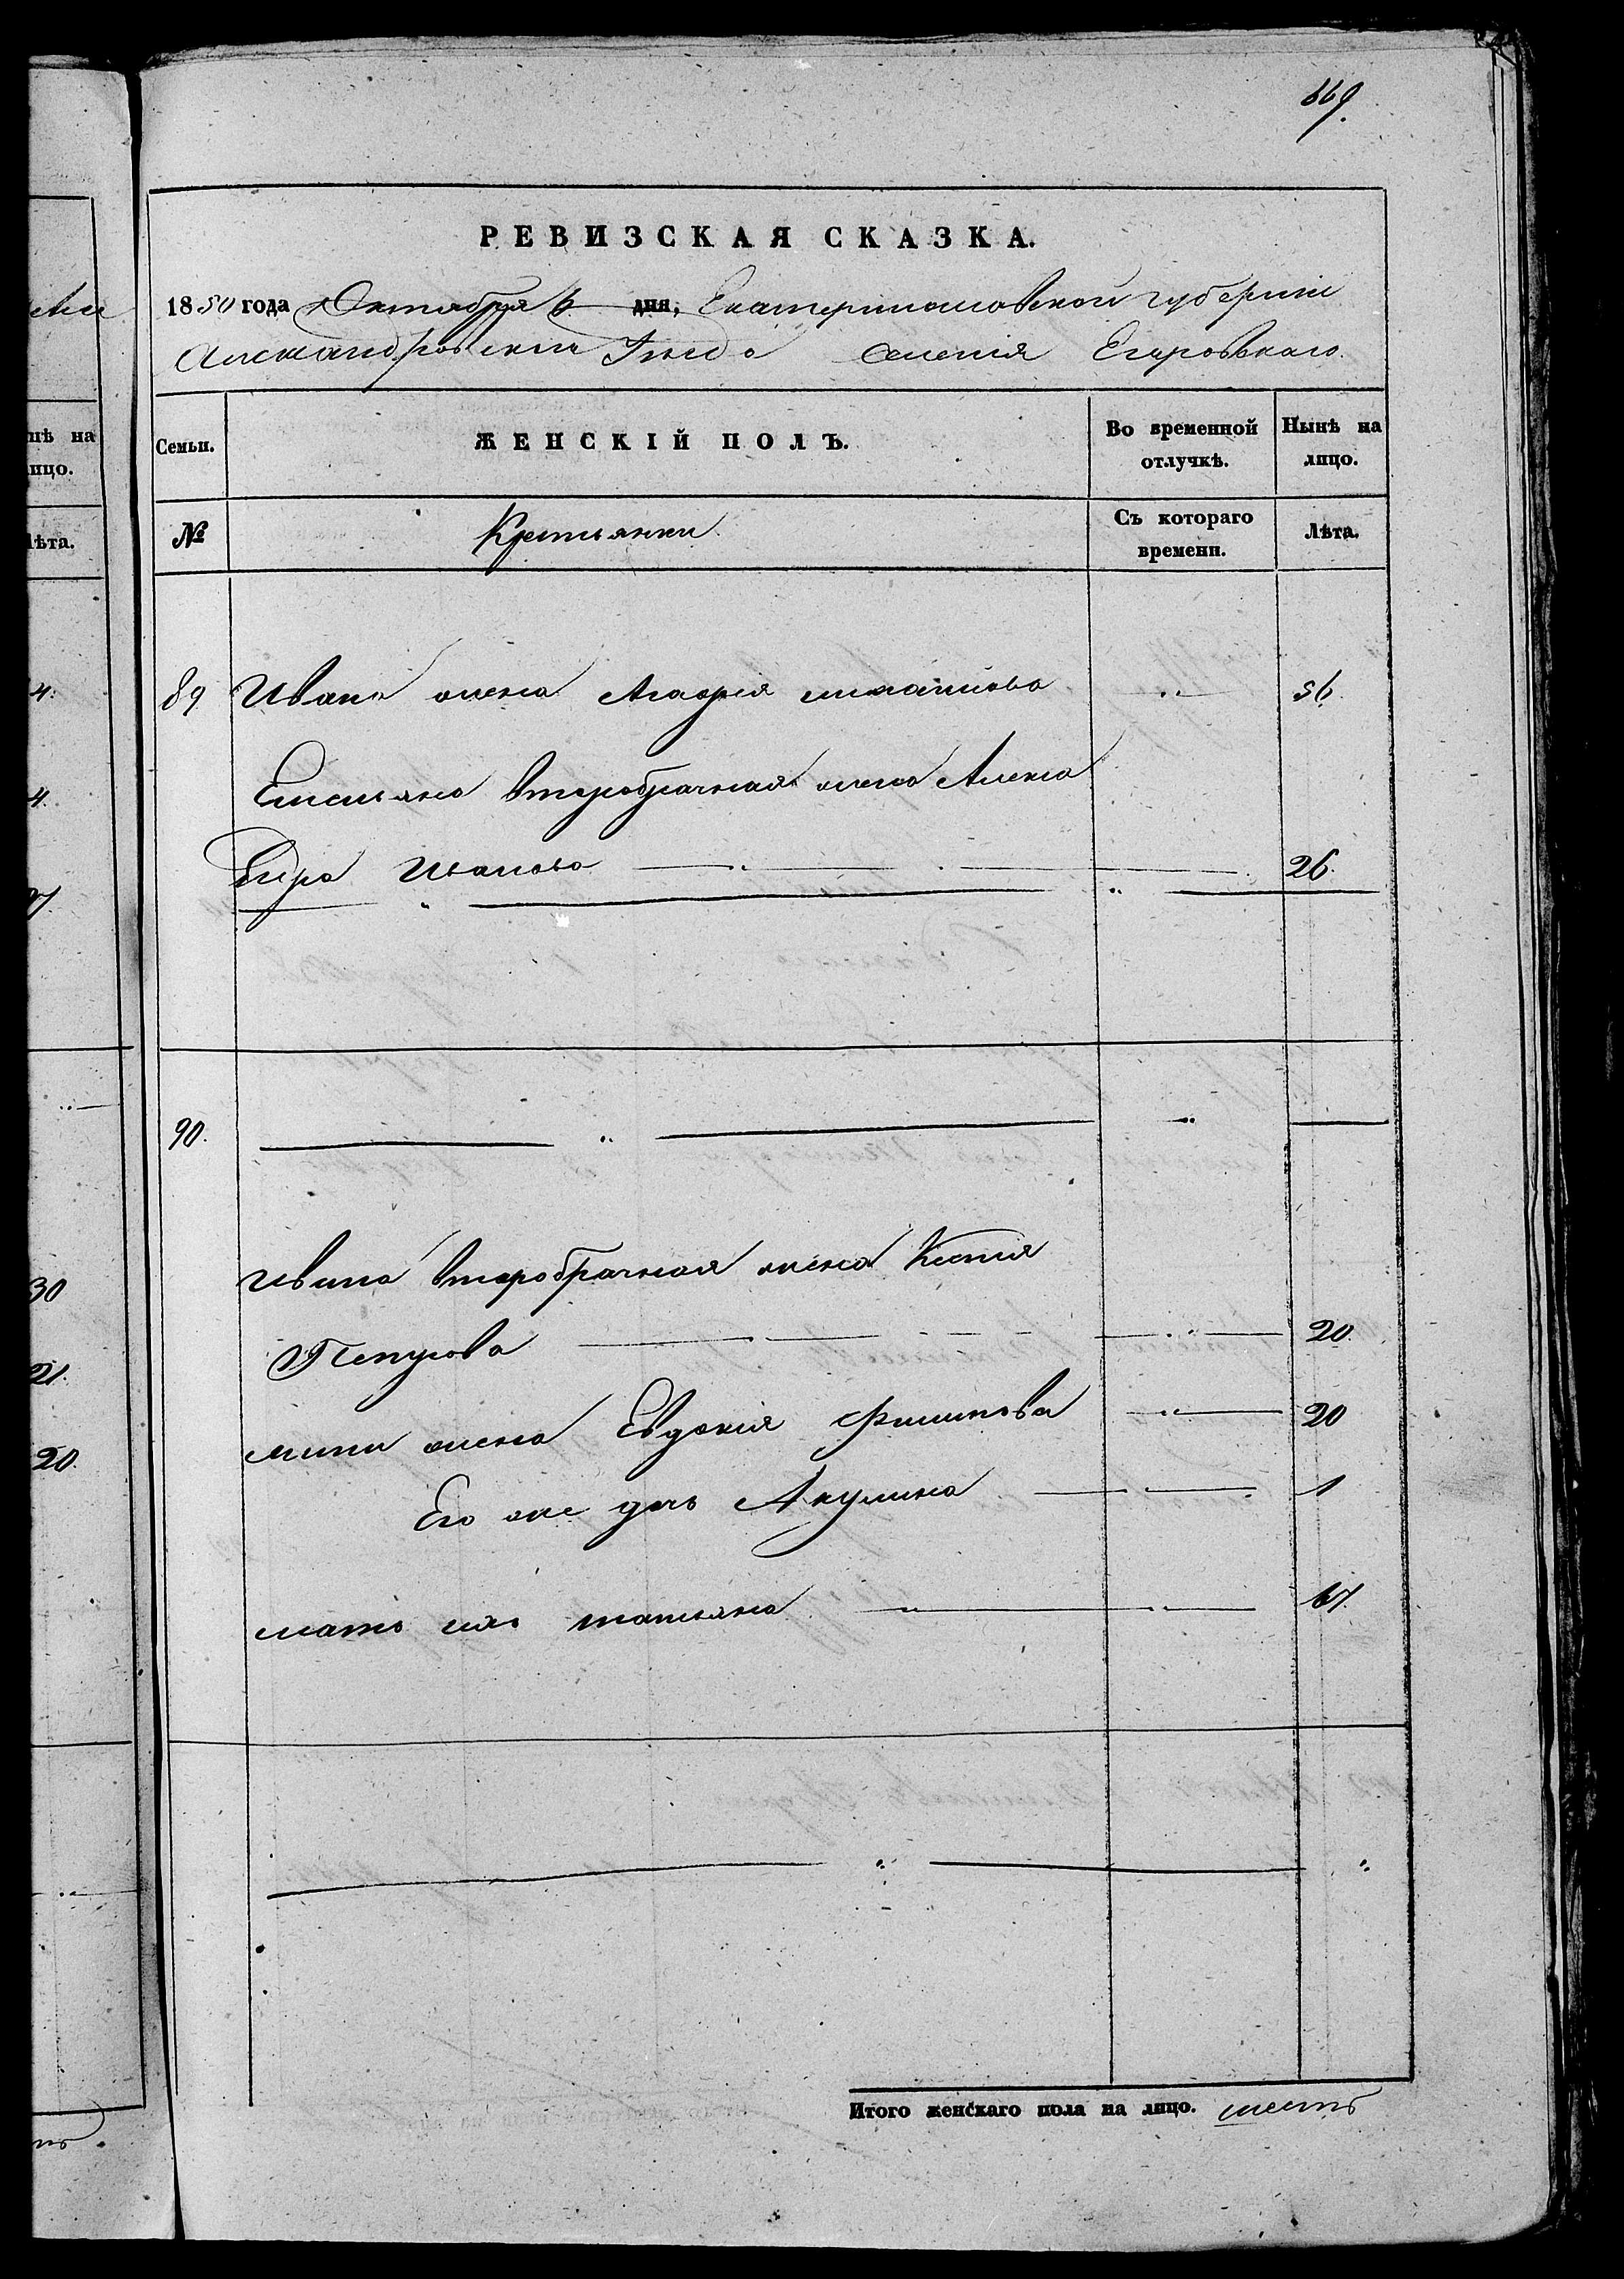 669.
РЕВИЗСКАЯ СКАЗКА.
1850 года Октября 6 дня, Екатеринославской губернiи
Александровскаго Уезда Селенiя Егоровскаго.
Семьи.
ЖЕНСКІЙ ПОЛЪ.
Во временной отлучкѣ.
Нынѣ на лицо.
№
Крестьянки
Съ котораго времени.
Лѣта.
89 Ивана жена Агафiя Михайлова 56.
Емельяна второбрачная жена Алекса
ндра Иванова 26.
90.
Ивана второбрачная жена Ксенiя
Петрова 20.
Мины жена Евдокiя Филипова 20
Его же дочь Акулина 1
мать ихъ Татьяна
Итого женскаго пола на лицо. шесть
нѣ на
ицо.
ѣта.
4.
4.
30
21.
20.